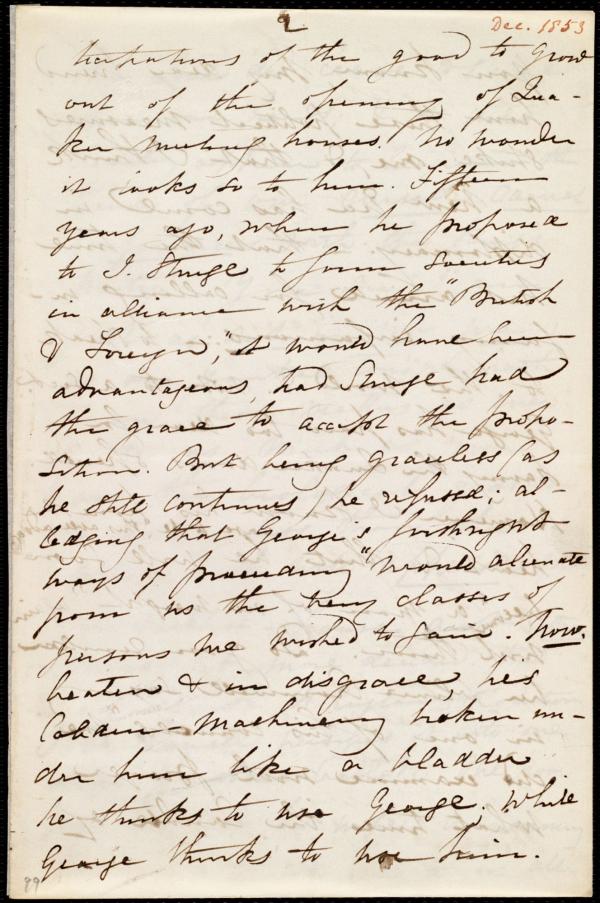 2
Dec. 1853
ticipations of the good to grow
out of the opening of Qua-
ker meeting houses. No wonder
it looks so to him. Fifteen
years ago, when he proposed
to J. Sturge to form societies
in alliance with the "British
& Foreign", it would have been
advantageous, had Sturge had
the grace to accept the propo-
sition. But being graceless (as
he still continues) he refused; al-
ledging that George's forthright
ways of proceeding "would alienate
from us the very classes of
persons we wished to gain. Now,
beaten & in disgrace, his
Cobden-machinery broken un-
der him like a bladder
he thinks to use George, while
George thinks to use him.
99